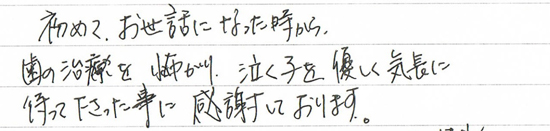 初めて、お世話になった時から、
歯の治療を怖がり、泣く子を優しく気長に
待って下さった事に感謝しております。